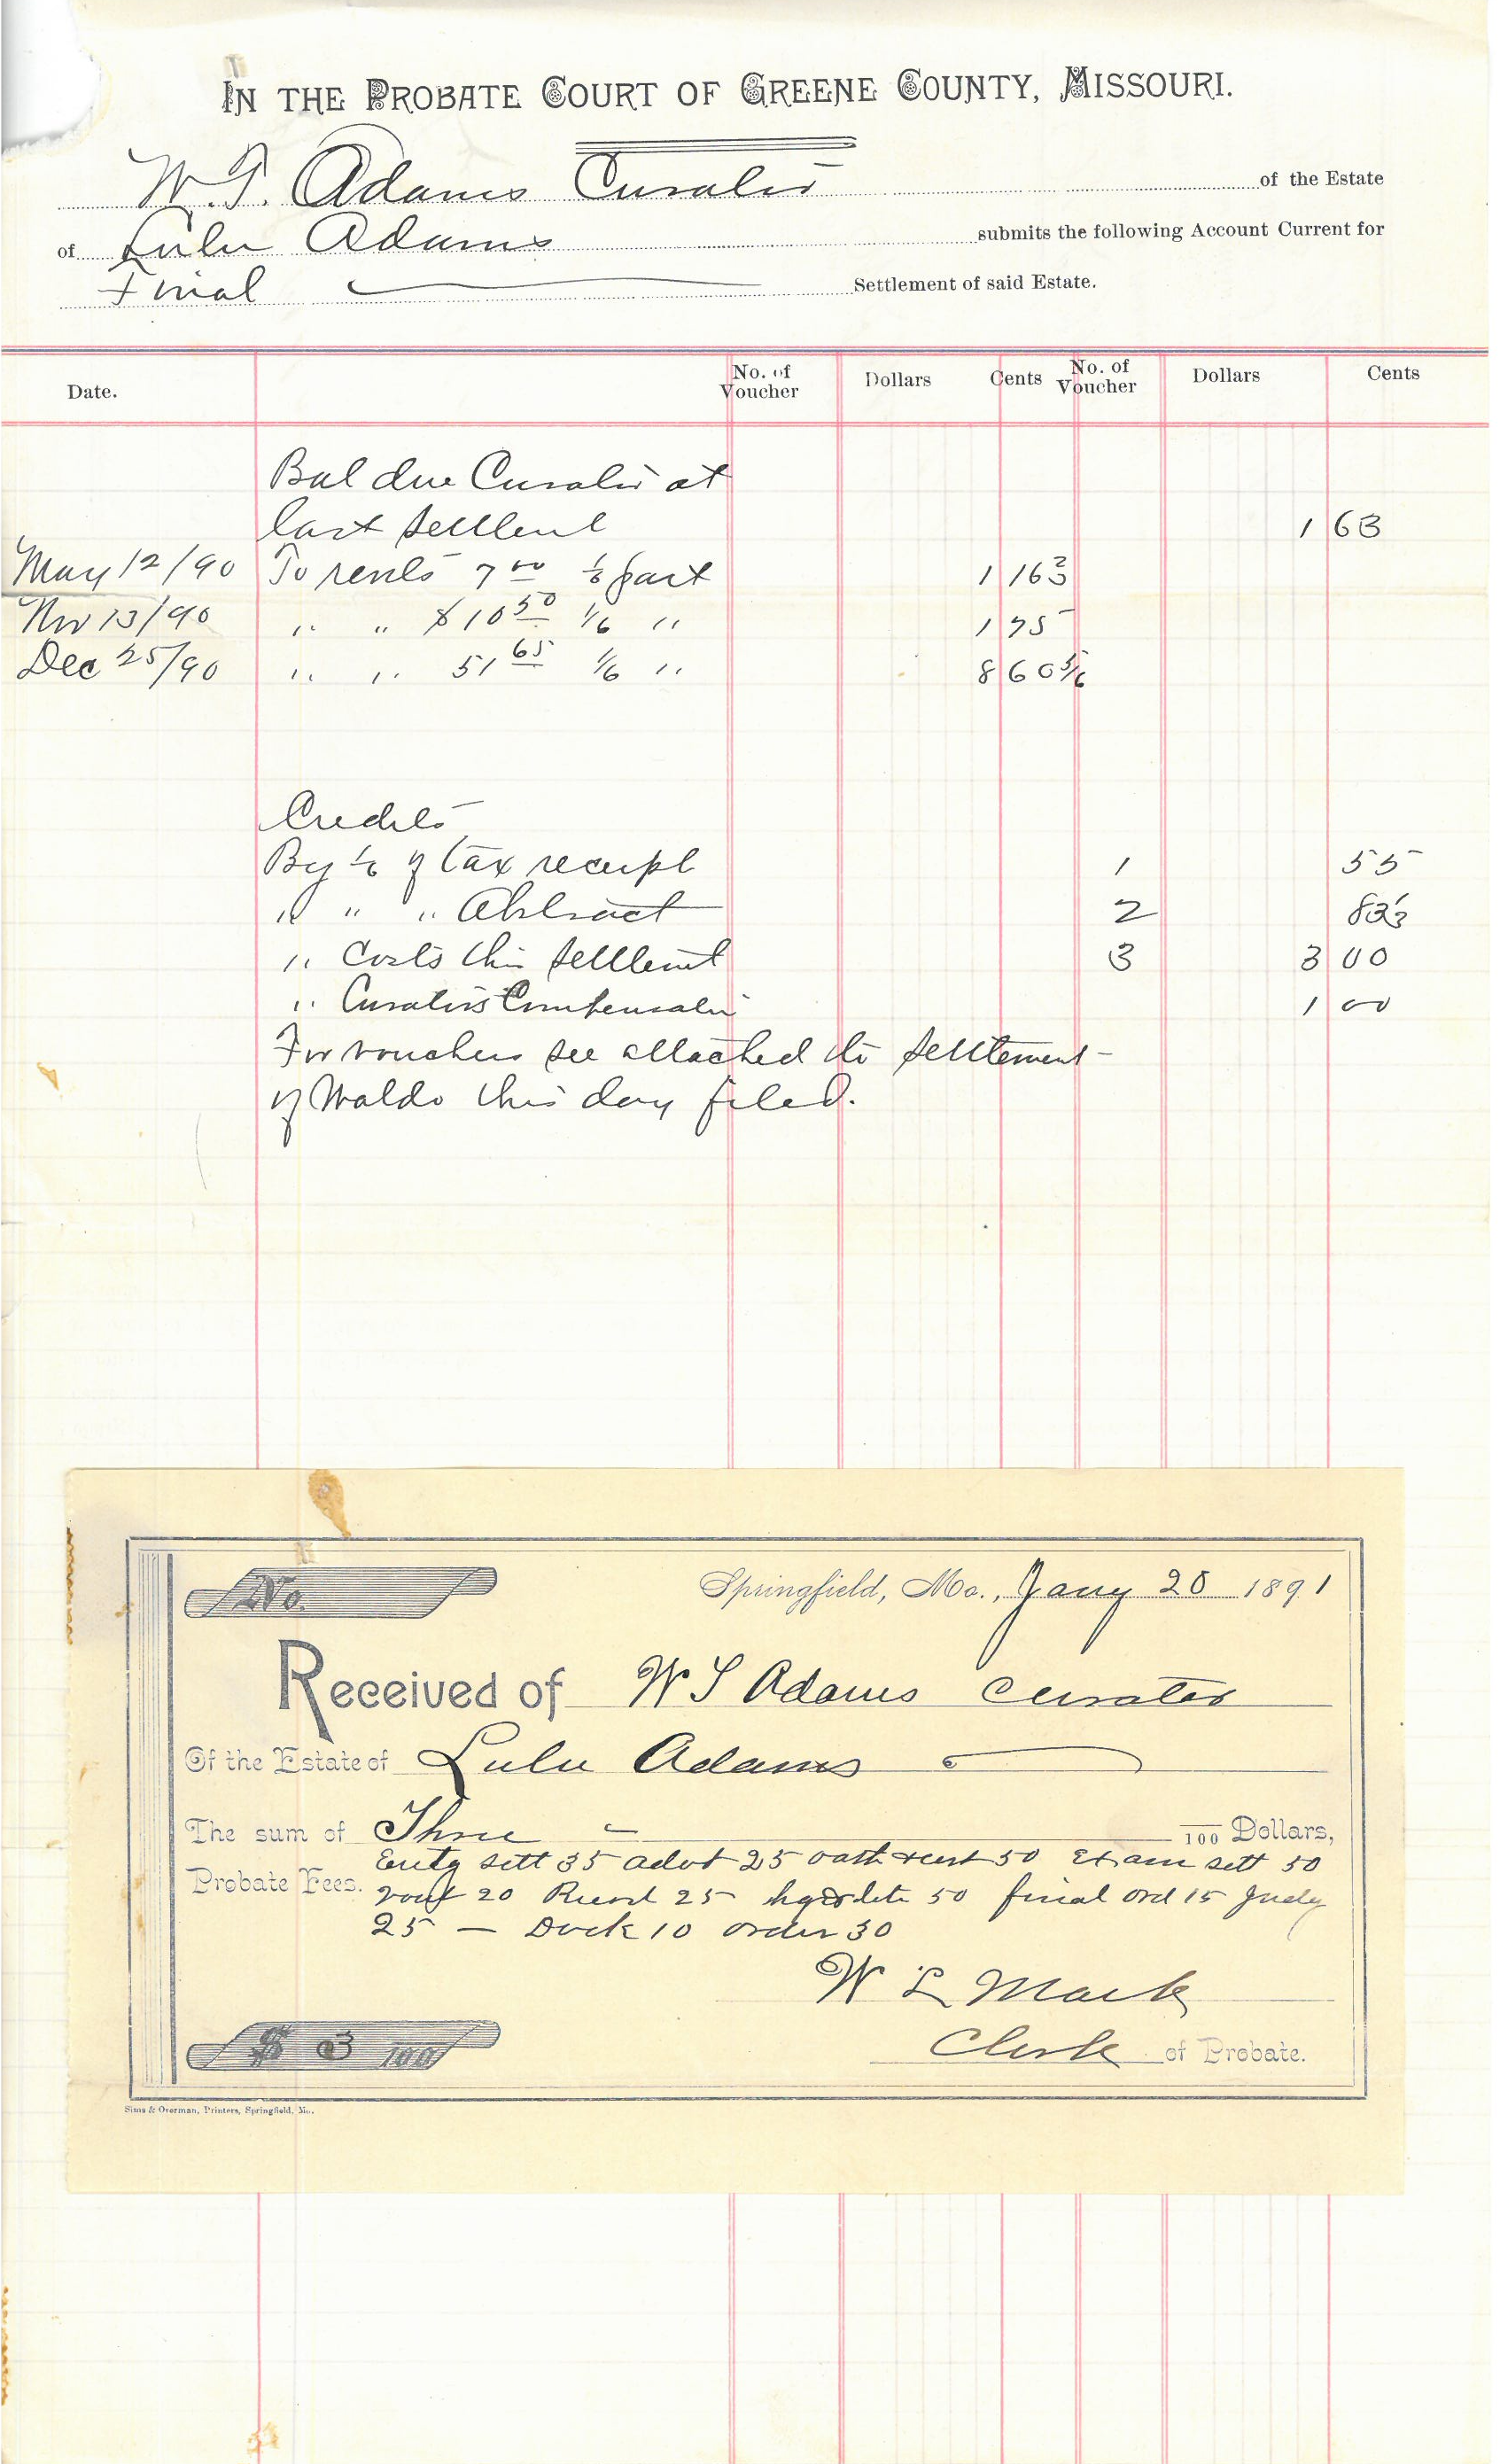 IN THE PROBATE COURT OF GREENE COUNTY, MISSOURI.
W. T. Adams Curator of the Estate
of Lulu Adams submits the following Account Current for
Final Settlement of said Estate.
Date. No. of Voucher Dollars Cents No. of Voucher Dollars Cents
Bal due Curator at
last settlement 1 63
May 12/90 To rents 7 00 1/6 part 1 16 2/3
Nov 13/90 " " $10 50 1/6 " 1 75
Dec 25/90 " " 51 65 1/6 " 8 60 5/6
Credits
By 1/6 of tax receipt 1 55
" " " Abstract 2 83 1/3
" Costs this settlement 3 3 00
" Curators Compensation 1 00
For vouchers see attached to settlement
of Waldo this day filed.
No.
Springfield, Mo., Jany 28 1891
Received of W T Adams Curator
Of the Estate of Lulu Adams
The sum of Three /100 Dollars,
Probate Fees. Entg sett 35 advt 25 oath & cert 50 Exam sett 50
vouf 20 Record 25 50 final ord 15 Judg
25 — Dock 10 order 30
W L Mack
$ 3 /100
Clerk of Probate.
Sims & Overman, Printers, Springfield, Mo.